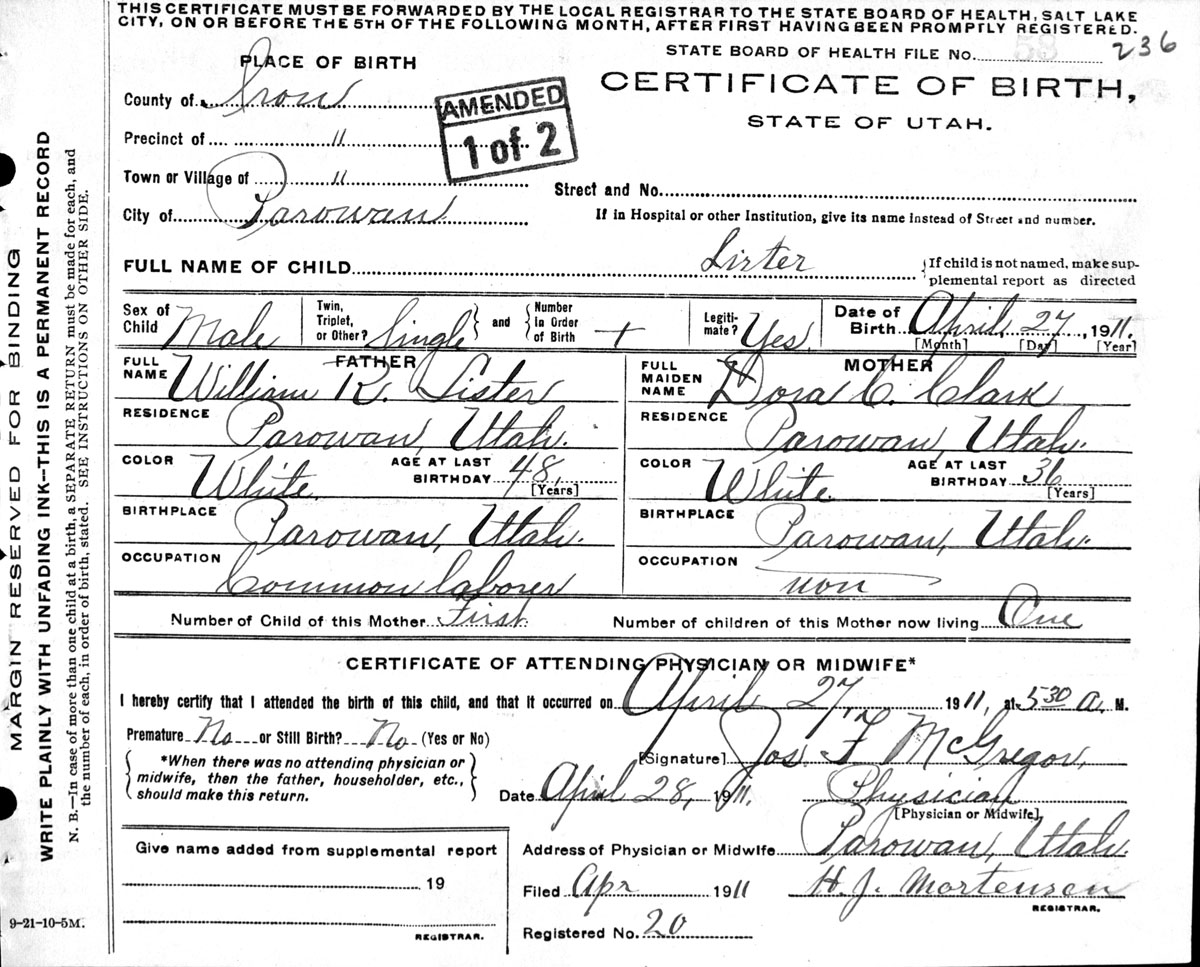 THIS CERTIFICATE MUST BE FORWARDED BY THE LOCAL REGISTRAR TO THE STATE BOARD OF HEALTH, SALT LAKE
CITY, ON OR BEFORE THE 5TH OF THE FOLLOWING MONTH, AFTER FIRST HAVING BEEN PROMPTLY REGISTERED.
STATE BOARD OF HEALTH FILE No. 59 236
PLACE OF BIRTH
CERTIFICATE OF BIRTH,
STATE OF UTAH.
County of Iron
AMENDED
1 of 2
Precinct of "
Town or Village of "
Street and No.
City of Parowan
If in Hospital or other Institution, give its name instead of Street and number.
FULL NAME OF CHILD Lister
{If child is not named, make sup-
plemental report as directed
Sex of Child Male
Twin, Triplet, or Other? Single } and { Number in Order of Birth +
Legiti-mate? Yes.
Date of Birth April, 27, 1911.
[Month] [Day] [Year]
FATHER
FULL NAME William R. Lister
RESIDENCE Parowan, Utah.
COLOR White. AGE AT LAST BIRTHDAY 48, [Years]
BIRTHPLACE Parowan, Utah.
OCCUPATION Common laborer
MOTHER
FULL MAIDEN NAME Dora C. Clark
RESIDENCE Parowan, Utah.
COLOR White. AGE AT LAST BIRTHDAY 36 [Years]
BIRTHPLACE Parowan, Utah.
OCCUPATION non
Number of Child of this Mother First. Number of children of this Mother now living One
CERTIFICATE OF ATTENDING PHYSICIAN OR MIDWIFE*
I hereby certify that I attended the birth of this child, and that it occurred on April 27, 1911, at 5 30 a. M.
Premature No or Still Birth? No. (Yes or No)
*When there was no attending physician or
midwife, then the father, householder, etc.,
should make this return.
[Signature] Jos. F McGregor,
Date April 28, 1911. Physician
[Physician or Midwife]
Address of Physician or Midwife Parowan, Utah.
Give name added from supplemental report
19
REGISTRAR.
Filed Apr 1911 H. J. Mortensen
REGISTRAR.
Registered No. 20
9-21-10-5M.
MARGIN RESERVED FOR BINDING
WRITE PLAINLY WITH UNFADING INK--THIS IS A PERMANENT RECORD
N. B.—In case of more than one child at a birth, a SEPARATE RETURN must be made for each, and
the number of each, in order of birth, stated. SEE INSTRUCTIONS ON OTHER SIDE.